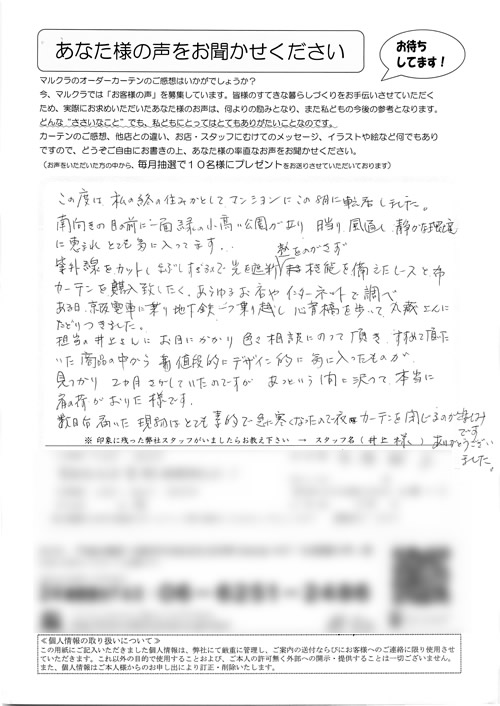 あなた様の声をお聞かせください
お待ち
してます！
マルクラのオーダーカーテンのご感想はいかがでしょうか？
今、マルクラでは「お客様の声」を募集しています。皆様のすてきな暮らしづくりをお手伝いさせていただく
ため、実際にお求めいただいたあなた様のお声は、何よりの励みとなり、また私どもの今後の参考となります。
どんな“ささいなこと”でも、私どもにとってはとてもありがたいことなのです。
カーテンのご感想、他店との違い、お店・スタッフにむけてのメッセージ、イラストや絵など何でもあり
ですので、どうぞご自由にお書きの上、あなた様の率直なお声をお聞かせください。
（お声をいただいた方の中から、毎月抽選で１０名様にプレゼントをお送りさせていただいております）
この度は 私の終の住みかとしてマンションにこの8月に転居しました。
南向きの目の前に一面緑の小高い公園が在り 日当り、風通し、静かな環境
に恵まれ とても気に入ってます。
紫外線をカットしまぶしすぎるので光を遮断 機能を備えたレースと布
カーテンを購入致したく、あらゆるお店やインターネットで調べ
ある日、京阪電車に乗り地下鉄一つ乗り越し 心斎橋を歩いて 丸蔵さんに
たどりつきました。
担当の井上さんにお目にかかり 色々相談にのって頂き、すすめて頂
いた商品の中から 値段的にデザイン的に気に入ったものが
見つかり 2カ月さがしていたのですが あっという間に決って、本当に
肩の荷がおりた様です。
数日后 届いた現物はとても素的で 急に寒くなったので夜 カーテンを閉じるのが楽しみ
です
ありがとうござい
ました。
※ 印象に残った弊社スタッフがいましたらお教え下さい → スタッフ名（ 井上 様 ）
06-6251-2486
≪個人情報の取り扱いについて≫
この用紙にご記入いただきました個人情報は、弊社にて厳重に管理し、ご案内の送付ならびにお客様へのご連絡に限り使用させ
ていただきます。これ以外の目的で使用することおよび、ご本人の許可無く外部への開示・提供することは一切ございません。
また、個人情報はご本人様からのお申し出により訂正・削除いたします。